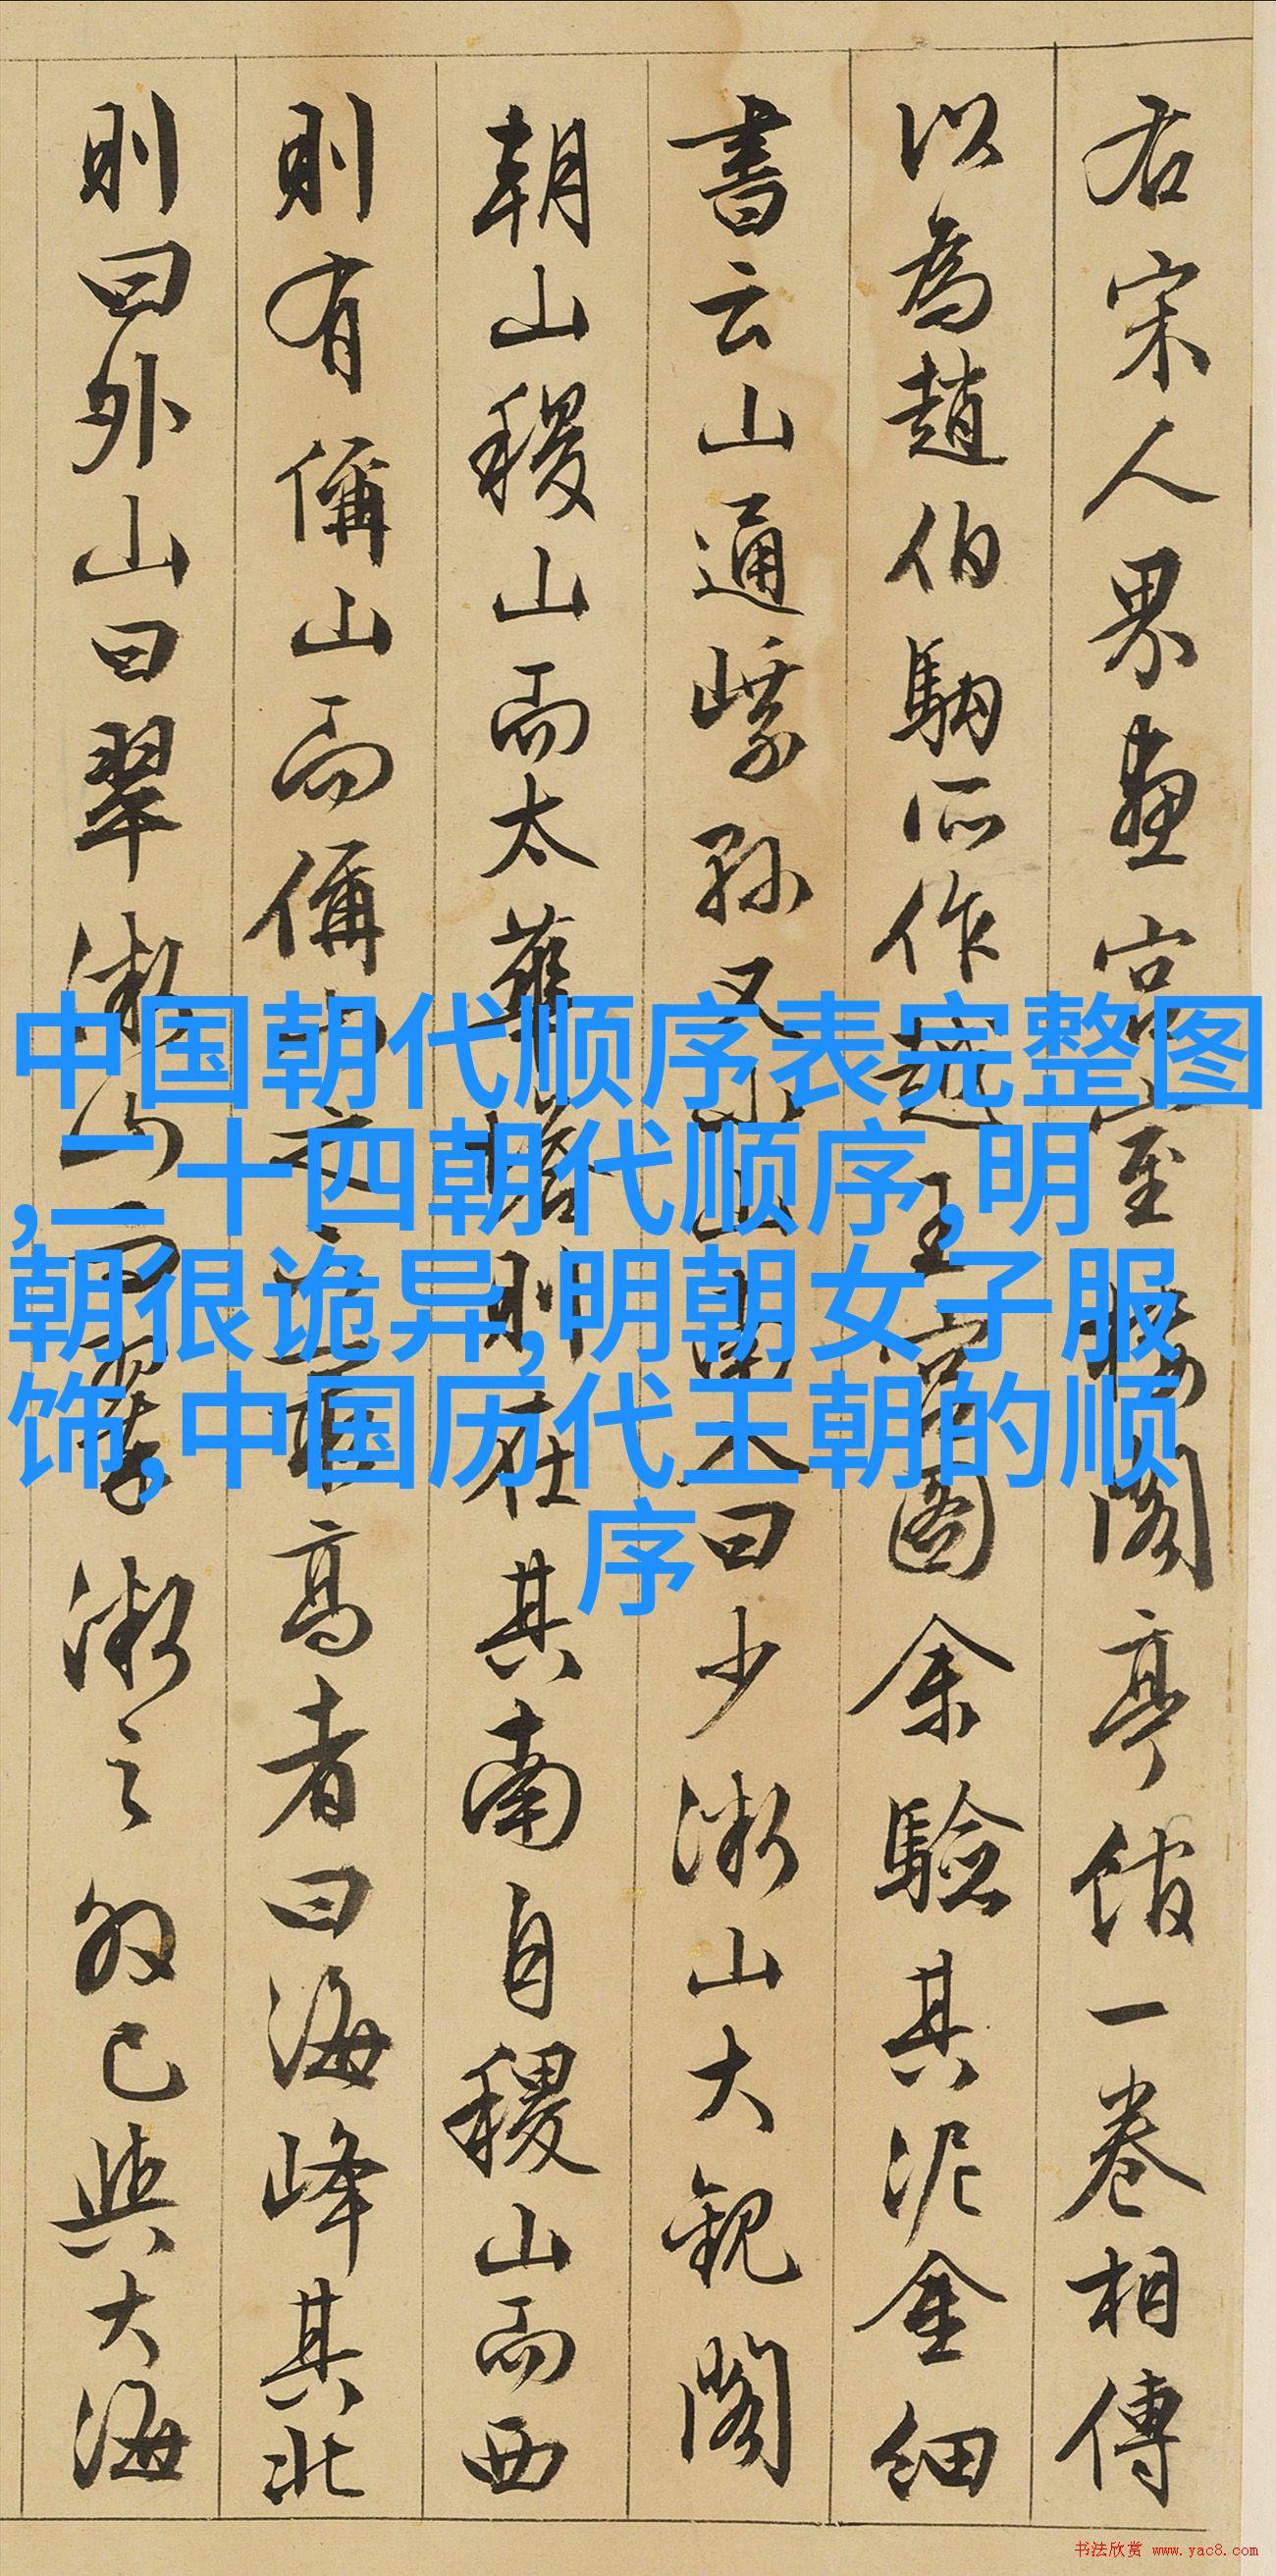 右宋人界畫宮室樓閣亭館一卷相傳
以為趙伯駒所作越王宮圖余驗其泥金細
書云山通 孫又 山南人曰少微山大觀閣
朝山稷山而太華 則在其南自稷山而西
則有稱山而稱山之 高者曰海峰其北
則曰外山曰翠微山而翠微之 已與大海
中国朝代顺序表完整图
,二十四朝代顺序,明
朝很诡异,明朝女子服
饰,中国历代王朝的顺
序
书法欣赏 www.yac8.com